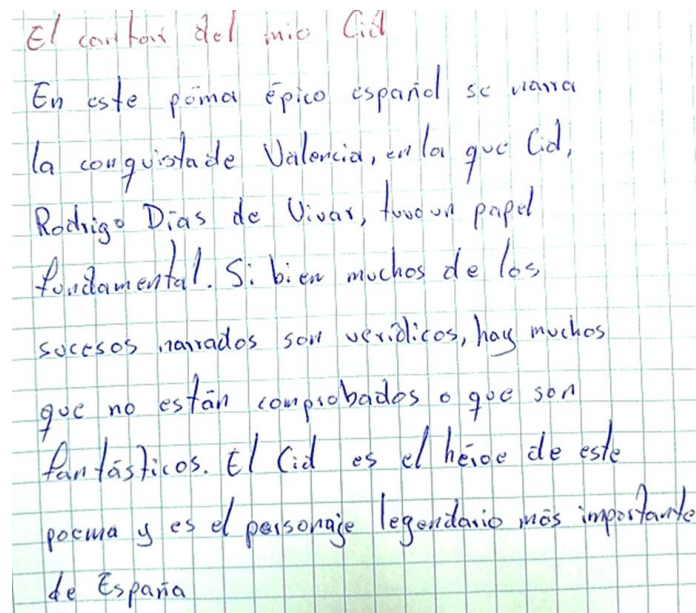 El cantar del mio Cid
En este póma épico español se narra
la conquistade Valencia, en la que Cid,
Rodrigo Días de Vivar, tuvo un papel
fundamental. Si bien muchos de los
sucesos narrados son verídicos, hay muchos
que no están comprobados o que son
fantásticos. El Cid es el héroe de este
poema y es el personaje legendario más importante
de España